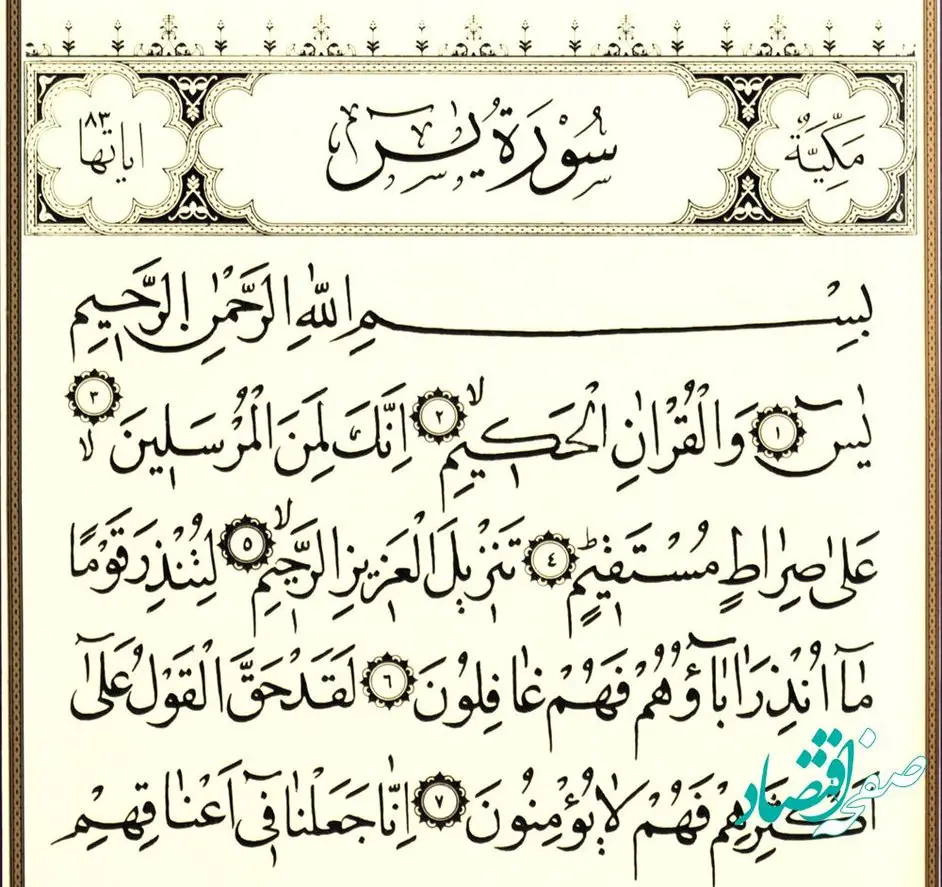 مَكِّيَّةٌ سُوْرَةُ يٰسٓ اياتها ٨٣
بِسْمِ اللّٰهِ الرَّحْمٰنِ الرَّحيمِ
يٰسٓ ۝١ وَالْقُرْاٰنِ الْحَكيمِۙ ۝٢ اِنَّكَ لَمِنَ الْمُرْسَلينَۙ ۝٣
عَلىٰ صِرٰاطٍ مُسْتَقيمٍؕ ۝٤ تَنْزيلَ الْعَزيزِ الرَّحيمِۙ ۝٥ لِتُنْذِرَ قَوْمًا
مٰٓا اُنْذِرَ اٰبٰٓاؤُهُمْ فَهُمْ غٰافِلُونَ ۝٦ لَقَدْ حَقَّ الْقَوْلُ عَلىٰٓ
اَكْثَرِهِمْ فَهُمْ لٰا يُؤْمِنُونَ ۝٧ اِنّٰا جَعَلْنٰا فىٓ اَعْنٰاقِهِمْ
صفحه اقتصاد